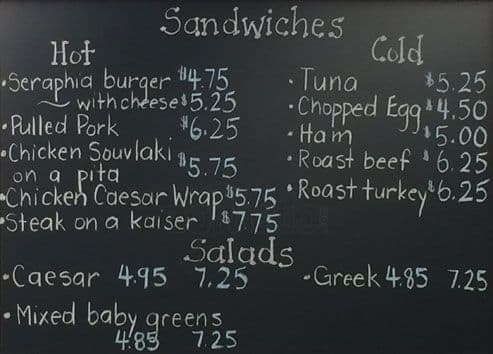 Sandwiches
Hot
•Seraphia burger $4.75
~ with cheese $5.25
•Pulled Pork $6.25
•Chicken Souvlaki
on a pita $5.75
•Chicken Caesar Wrap $5.75
•Steak on a kaiser $7.75
Cold
•Tuna $5.25
•Chopped Egg $4.50
•Ham $5.00
•Roast beef $6.25
•Roast turkey $6.25
Salads
•Caesar 4.95 7.25
•Greek 4.85 7.25
•Mixed baby greens
4.85 7.25